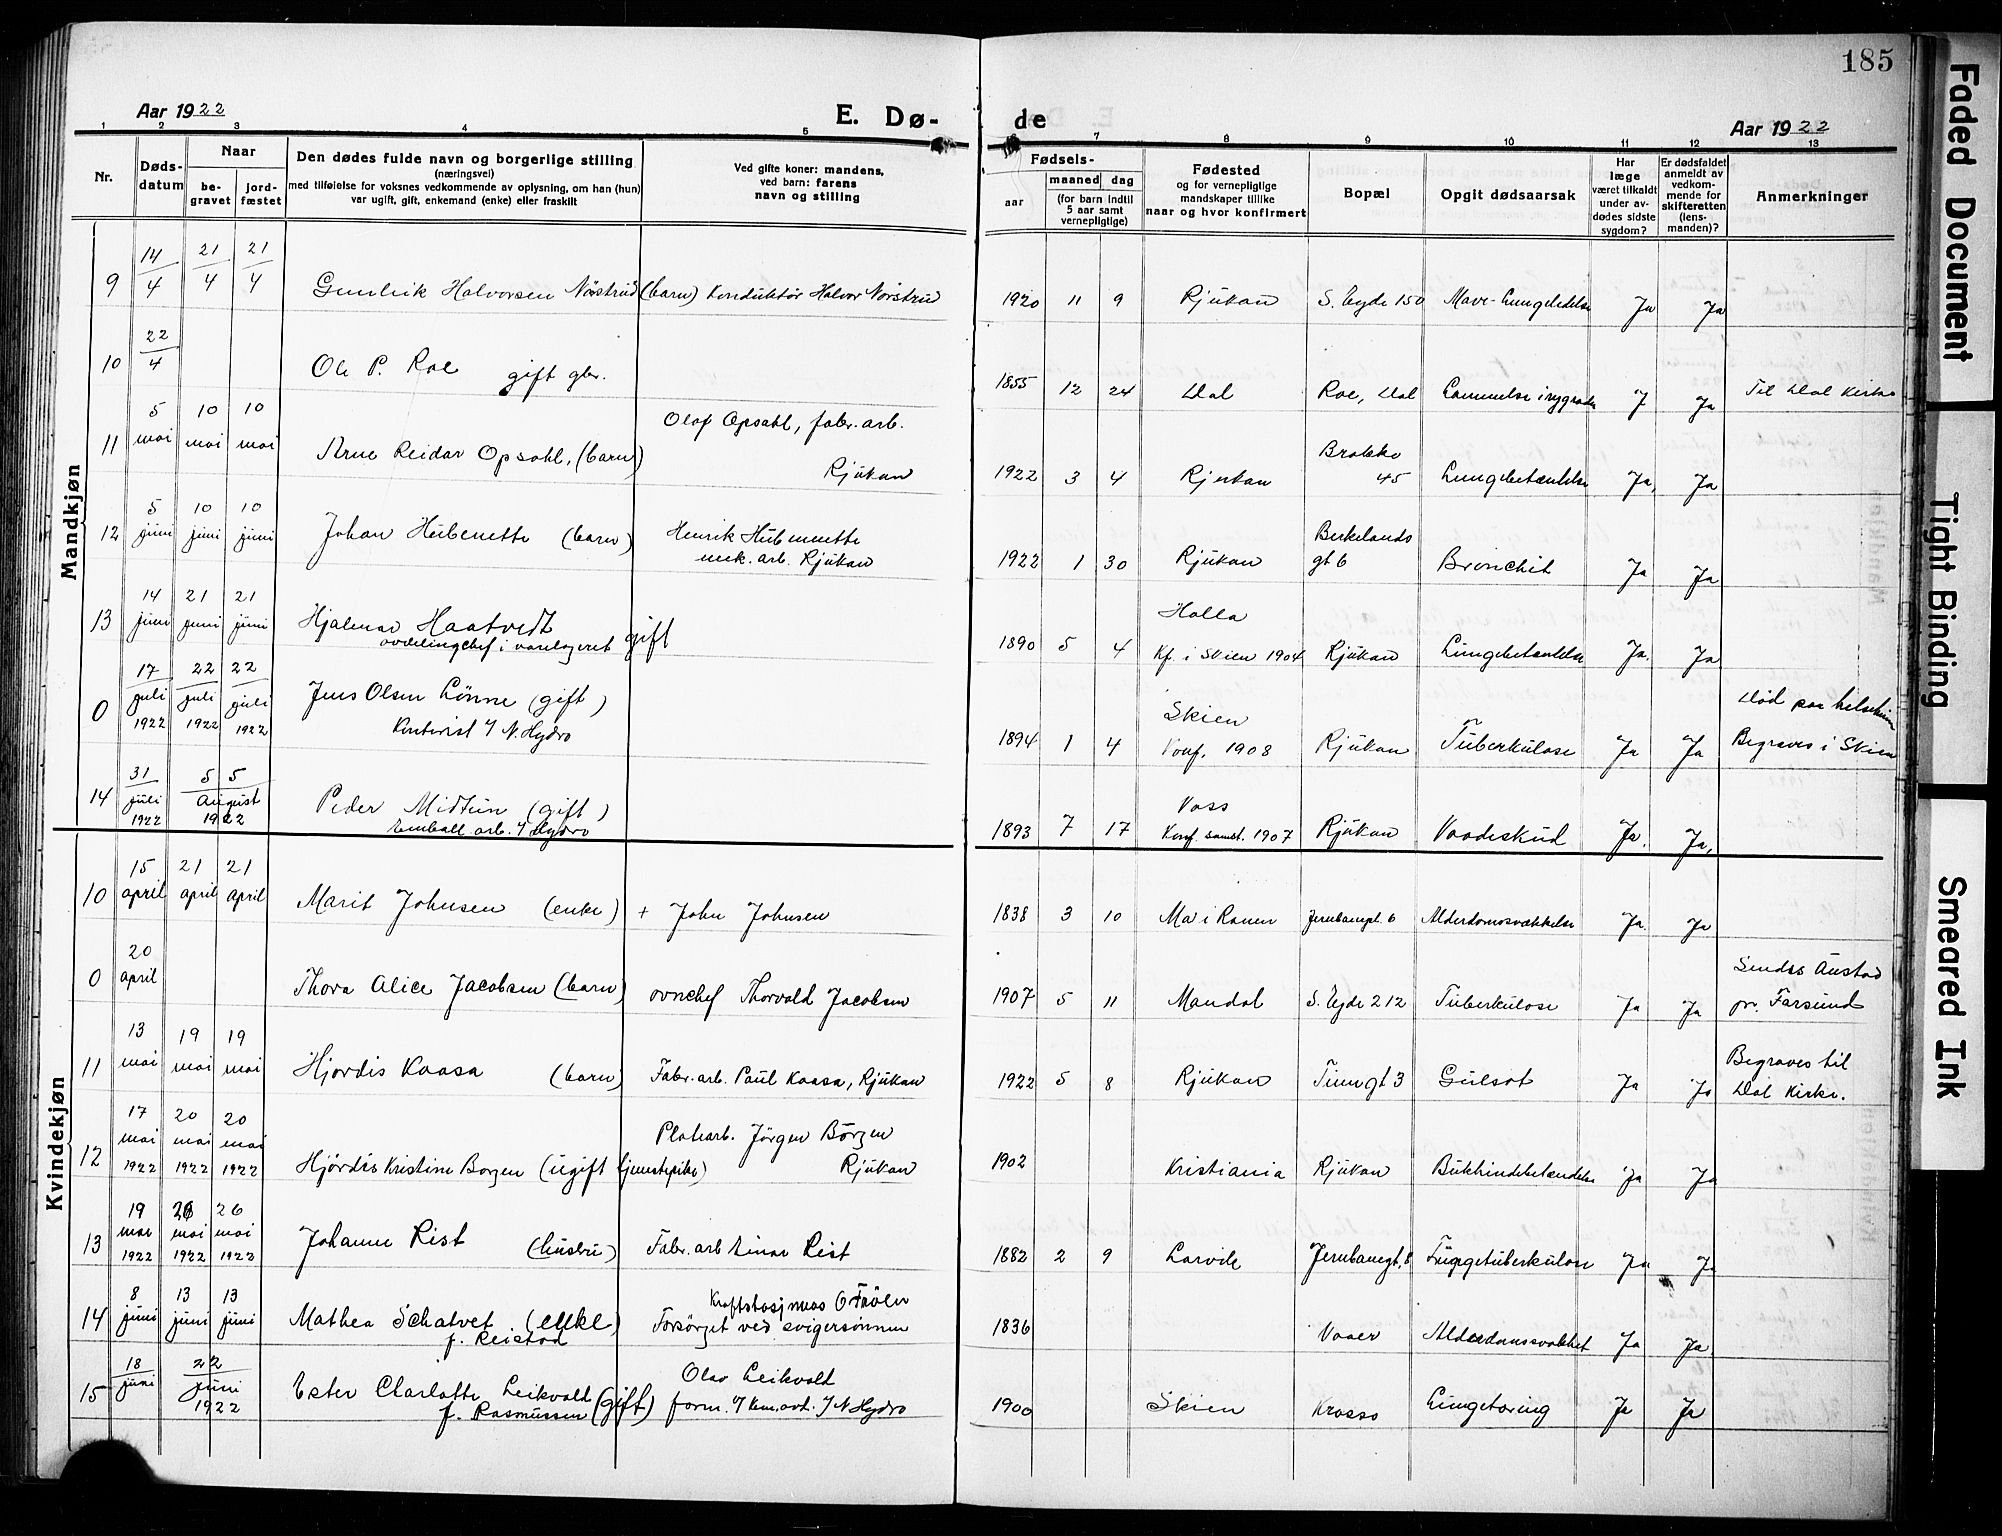 185
Aar 1922
E. Dø-
de
Aar 1922
1 2 3 4 5 6 7 8 9 10 11 12 13
Nr.
Døds-
datum
Naar
be-
gravet
jord-
fæstet
Den dødes fulde navn og borgerlige stilling
(næringsvei)
med tilføielse for voksnes vedkommende av oplysning, om han (hun)
var ugift, gift, enkemand (enke) eller fraskilt
Ved gifte koner: mandens,
ved barn: farens
navn og stilling
Fødsels-
aar
maaned
dag
(for barn indtil
5 aar samt
vernepligtige)
Fødested
og for vernepligtige
mandskaper tillike
naar og hvor konfirmert
Bopæl
Opgit dødsaarsak
Har
læge
været tilkaldt
under av-
dødes sidste
sygdom?
Er dødsfaldet
anmeldt av
vedkom-
mende for
skifteretten
(lens-
manden)?
Anmerkninger
Mandkjøn
9 14/4 21/4 21/4 Gunleik Halvorsen Nørstrud (barn) Konduktør Halvor Nørstrud 1920 11 9 Rjukan S. Eyde 150 Mave-Lungebetedelse Ja Ja
10 22/4 Ole P. Roe gift gbr. 1855 12 24 Dal Roe, Dal Lammelse i rygraden J Ja Til Dal Kirke
11 5 mai 10 mai 10 mai Arne Reidar Opsahl, (barn) Olaf Opsahl, fabr. arb.
Rjukan 1922 3 4 Rjukan Brakke
45 Lungebetændelse Ja, Ja
12 5 juni 10 juni 10 juni Johan Hübenette (barn) Henrik Hübennette
mek. arb. Rjukan 1922 1 30 Rjukan Birkelands
gt 6 Bronchit Ja Ja
13 14 juni 21 juni 21 juni Hjalmar Haatvedt gift
avdelingchef i varelageret 1890 5 4 Holla
Kf. i Skien 1904 Rjukan Lungebetændelse Ja. Ja
0 17 juli 1922 22 juli 1922 22 juli 1922 Jens Olsen Lønne (gift)
Kontorist v/ N. Hydro 1894 1 4 Skien
Konf. 1908 Rjukan Tuberkulose Ja Ja Død paa
Begraves i Skien
14 31 juli 1922 5 5 august 1922 Peder Midtun (gift)
Emball. arb. v/ Hydro 1893 7 17 Voss
Konf. samst. 1907 Rjukan Vaadeskud Ja. Ja,
Kvindekjøn
10 15 april 21 april 21 april Marit Johnsen (enke) + John Johnsen 1838 3 10 Mo i Ranen Jernbanegt. 6 Alderdomssvækkelse Ja. Ja
0 20 april Thora Alice Jacobsen (barn) ovnchef Thorvald Jacobsen 1907 5 11 Mandal S. Eyde 212 Tuberkulose Ja Ja Sendes Austad
pr. Farsund
11 13 mai 19 mai 19 mai Hjordis Kaasa (barn) Fabr. arb. Paul Kaasa, Rjukan 1922 5 8 Rjukan Tinngt 3 Gulsot Ja Ja Begraves til
Dal Kirke.
12 17 mai 1922 20 mai 1922 20 mai 1922 Hjördis Kristine Borgen (ugift tjenestepike) Platearb. Jörgen Börgen
Rjukan 1902 Kristiania Rjukan Bukhindebetændelse Ja Ja
13 19 mai 1922 26 mai 1922 26 mai 1922 Johanne Rist (hustru) Fabr. arb Einar Rist 1882 2 9 Larvik Jernbanegt. 8 Tuberkulose Ja Ja
14 8 juni 13 juni 13 juni Mathea Schatvet (enke)
f. Reistad Kraftstasj mas O Frölen
Forsörget ved svigersönnen 1836 Vaaer Alderdomssvakhet Ja Ja
15 18 juni 22 juni 1922 Ester Charlotte Leikvold (gift)
f. Rasmussen Olav Leikvold
form. v/ kem. avd. v/ N Hydro 1900 Skien Krosso Lungetæring Ja Ja
Faded Document
Tight Binding
Smeared Ink